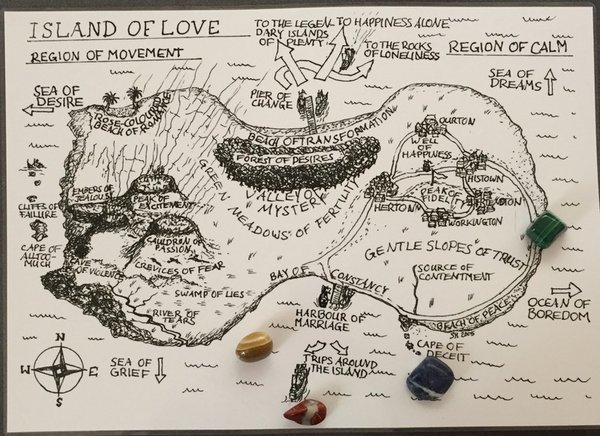 ISLAND OF LOVE
REGION OF MOVEMENT
TO THE LEGEN
DARY ISLANDS
OF PLENTY
TO HAPPINESS ALONE
TO THE ROCKS
OF LONELINESS
REGION OF CALM
SEA OF
DESIRE
SEA OF
DREAMS
PIER OF
CHANGE
ROSE-COLOURED
BEACH OF ROMANCE
BEACH OF TRANSFORMATION
FOREST OF DESIRES
ALLEY OF
MYSTERY
GREEN MEADOWS OF FERTILITY
OURTON
WELL OF
HAPPINESS
HISTOWN
PEAK OF
FIDELITY
HERTON
WORKINGTON
EMBERS OF
JEALOUSY
PEAK OF
EXCITEMENT
CLIFFS OF
FAILURE
CAULDRON OF
PASSION
CAPE OF
ALLTOO-
MUCH
CAVE
OF VIOLENCE
CREVICES OF FEAR
GENTLE SLOPES OF TRUST
SWAMP OF LIES
BAY OF CONSTANCY
SOURCE OF
CONTENTMENT
RIVER OF
TEARS
HARBOUR OF
MARRIAGE
BEACH OF PEACE
OCEAN OF
BOREDOM
CAPE OF
DECEIT
TRIPS AROUND
THE ISLAND
SEA OF
GRIEF
N
W
E
S